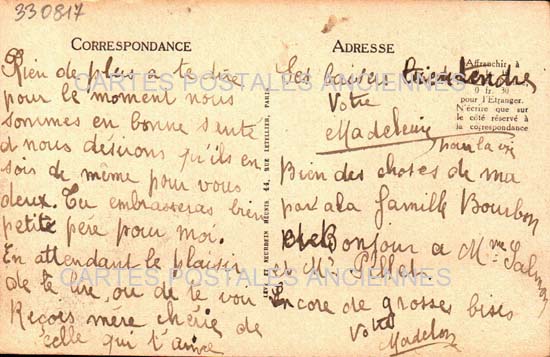 330817
CORRESPONDANCE
Rien de plus a te dire
pour le moment nous
sommes en bonne senté
et nous désirons qu'ils en
sois de même pour vous
deux. Tu embrasseras bien
petite père pour moi.
En attendant le plaisir
de te lire, ou de te voir
Reçois mère chérie de
celle qui t'aime
LEVY ET NEURDEIN RÉUNIS, 44, RUE LETELLIER, PARIS
ADRESSE
Affranchir à
0 fr. 30
pour l'Étranger.
N'écrire que sur
le côté réservé à
la correspondance
Les baisers bien tendre
Votre
Madeleine
pour la vie
Bien des choses de ma
par a la famille Bourbon
Bonjour a Mme
et Mr
Encore de grosses bises
Votre
Madelon
CARTES POSTALES ANCIENNES
CARTES POSTALES ANCIENNES